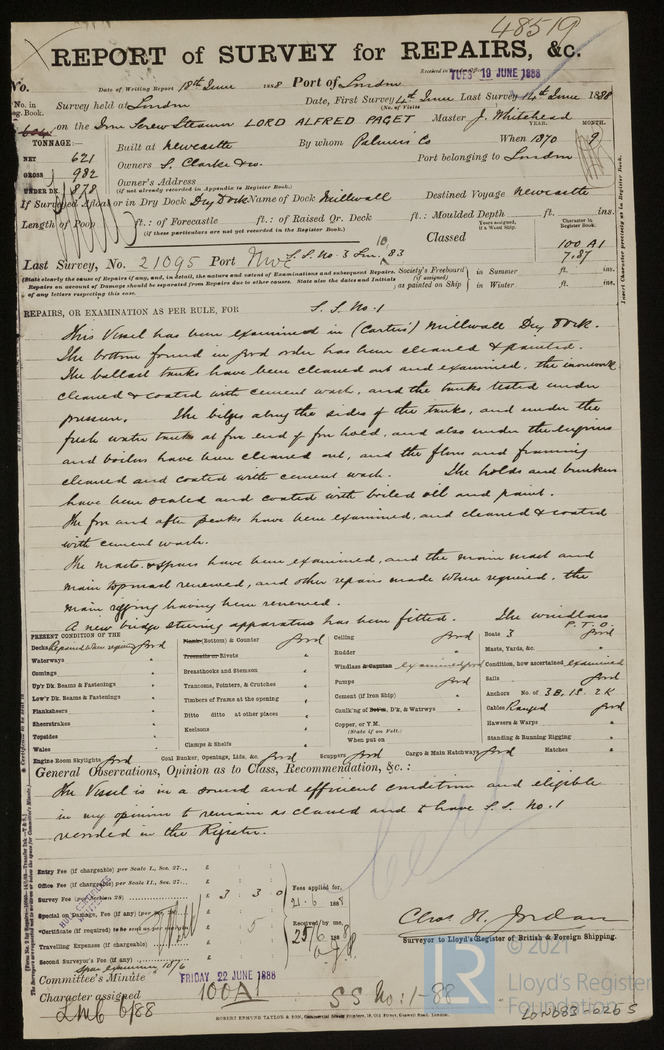 48519
REPORT of SURVEY for REPAIRS, &c.
Received in
TUES 19 JUNE 1888
No. Date of Writing Report 18th June 1888 Port of London
No. in Reg. Book. Survey held at London Date, First Survey 4th June Last Survey 14th June 1888
(No. of Visits
on the Iron Screw Steamer LORD ALFRED PAGET Master J. Whitehead
TONNAGE:— Built at Newcastle By whom Palmers Co When 1870 9
YEAR. MONTH.
NET 621 Owners S. Clarke & Co. Port belonging to London
GROSS 982 Owner's Address
UNDER DK. 878 (if not already recorded in Appendix to Register Book.)
If Surveyed Afloat or in Dry Dock Dry Dock Name of Dock Millwall Destined Voyage Newcastle
Length of Poop ft.: of Forecastle ft.: of Raised Qr. Deck ft.: Moulded Depth ft. ins.
(if these particulars are not yet recorded in the Register Book.)
Years assigned, if a Wood Ship.
Character in Register Book:
Classed 100 A1
7.87
Last Survey, No. 21095 Port Nwc S.S. No. 3 Lon. 10, 83
(State clearly the cause of Repairs if any, and, in detail, the nature and extent of Examinations and subsequent Repairs. Repairs on account of Damage should be separated from Repairs due to other causes. State also the dates and Initials of any letters respecting this case.
Society's Freeboard (if assigned) as painted on Ship in Summer ft. ins.
in Winter ft. ins.
Insert Character precisely as in Register Book.
REPAIRS, OR EXAMINATION AS PER RULE, FOR S. S. No. 1
This Vessel has been examined in (Carter's) Millwall Dry Dock.
The bottom found in good order has been cleaned & painted.
The ballast tanks have been cleaned out and examined, the ironwork
cleaned & coated with cement wash, and the tanks tested under
pressure. The bilges along the sides of the tanks, and under the
fresh water tanks at fore end of fore hold, and also under the engines
and boilers have been cleaned out, and the floors and framing
cleaned and coated with cement wash. The holds and bunkers
have been scaled and coated with boiled oil and paint.
The fore and after peaks have been examined, and cleaned & coated
with cement wash.
The masts & spars have been examined, and the main mast and
main topmast renewed, and other repairs made where required, the
main rigging having been renewed.
A new bridge steering apparatus has been fitted. The windlass
P.T.O.
PRESENT CONDITION OF THE
Decks Repaired where required Good
Waterways "
Comings "
Up'r Dk. Beams & Fastenings "
Low'r Dk. Beams & Fastenings "
Planksheers "
Sheerstrakes "
Topsides "
Wales "
Engine Room Skylights Good
Plank (Bottom) & Counter Good
Treenails or Rivets "
Breasthooks and Stemson "
Transoms, Pointers, & Crutches "
Timbers of Frame at the opening "
Ditto ditto at other places "
Keelsons "
Clamps & Shelfs "
Coal Bunker, Openings, Lids, &c. Good
Ceiling Good
Rudder "
Windlass & Capstan examined good
Pumps Good
Cement (if Iron Ship) "
Caulk'ng of Bot'm, D'k, & Watrwys "
Copper, or Y.M.
(State if on Felt.)
When put on
Scuppers Good Cargo & Main Hatchways Good
Boats 3 Good
Masts, Yards, &c. "
Condition, how ascertained examined
Sails Good
Anchors No. of 3B, 1S, 2K
Cables Ranged Good
Hawsers & Warps "
Standing & Running Rigging "
Hatches "
General Observations, Opinion as to Class, Recommendation, &c.:
The Vessel is in a sound and efficient condition and eligible
in my opinion to remain as classed and to have S.S. No. 1
recorded in the Register.
Entry Fee (if chargeable) per Scale I., Sec. 27... £
Office Fee (if chargeable) per Scale II., Sec. 27... £
Survey Fee (per Section 28) £ 3 3 0
Special or Damage, Fee (if any) (per £
*Certificate (if required) to be sent as per £ 5
Travelling Expenses (if chargeable) £
Second Surveyor's Fee (if any) £
Fees applied for,
21.6 1888
Received by me,
25/6 1888
Chas. H. Jordan
Surveyor to Lloyd's Register of British & Foreign Shipping.
Committee's Minute FRIDAY 22 JUNE 1888
Character assigned 100A1 SS No: 1-88
LMC 6/88
ROBERT EDMUND TAYLOR & SON, Commercial Steam Printers, 19, Old Street, Goswell Road, London.
© 2021
LR
Lloyd's Register
Foundation
LON683-0265